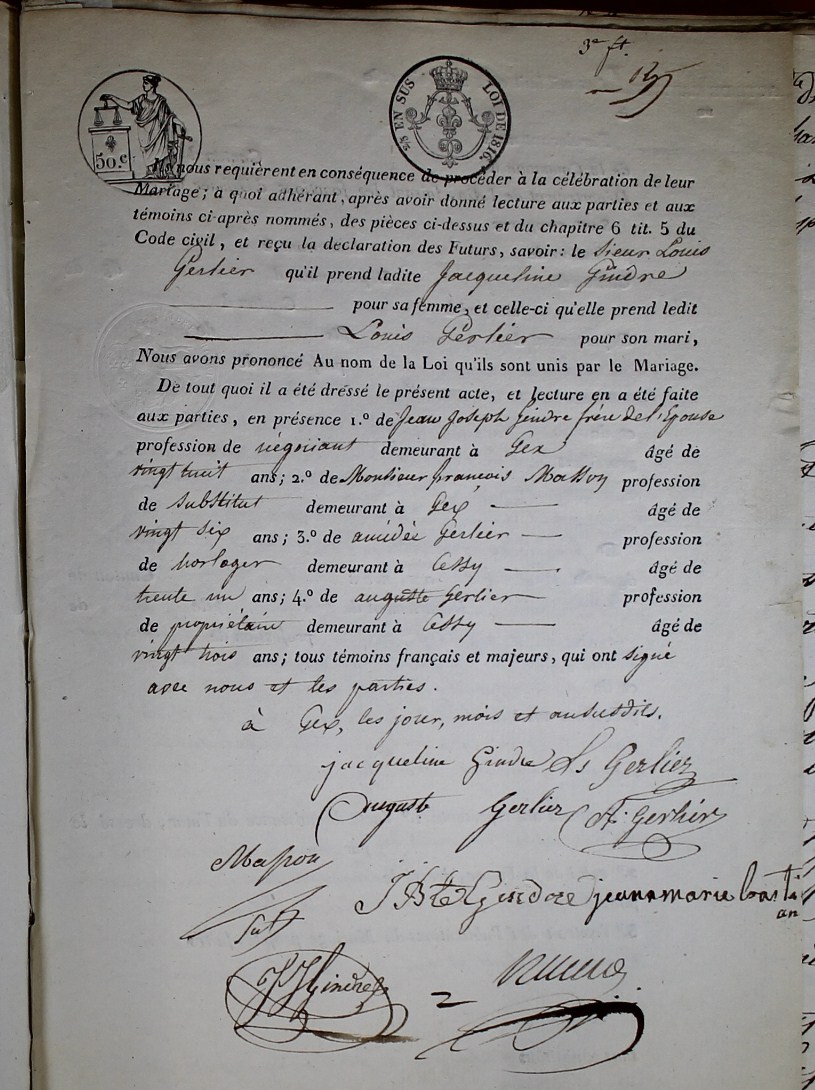 3e ft.
50.c
25 EN SUS LOI DE 1816
nous requièrent en conséquence de procéder à la célébration de leur
Mariage; à quoi adhérant, après avoir donné lecture aux parties et aux
témoins ci-après nommés, des pièces ci-dessus et du chapitre 6 tit. 5 du
Code civil, et reçu la declaration des Futurs, savoir: le sieur Louis
Gerlier qu'il prend ladite Jacqueline Gindre
pour sa femme, et celle-ci qu'elle prend ledit
Louis Gerlier pour son mari,
Nous avons prononcé Au nom de la Loi qu'ils sont unis par le Mariage.
De tout quoi il a été dressé le présent acte, et lecture en a été faite
aux parties, en présence 1.o de Jean Joseph Gindre frère de l'Epouse
profession de négociant demeurant à Gex âgé de
vingt huit ans; 2.o de Monsieur françois Masson profession
de substitut demeurant à Gex âgé de
vingt six ans; 3.o de amédée Gerlier profession
de horloger demeurant à Cessy âgé de
trente un ans; 4.o de auguste Gerlier profession
de propriétaire demeurant à Cessy âgé de
vingt trois ans; tous témoins français et majeurs, qui ont signé
avec nous et les parties.
à Gex, les jour, mois et an susdits.
jacqueline Gindre Ls Gerlier
auguste Gerlier A. Gerlier
Masson
Sutt
JBte Gindre jeanemarie basti
an
JJ Gindre